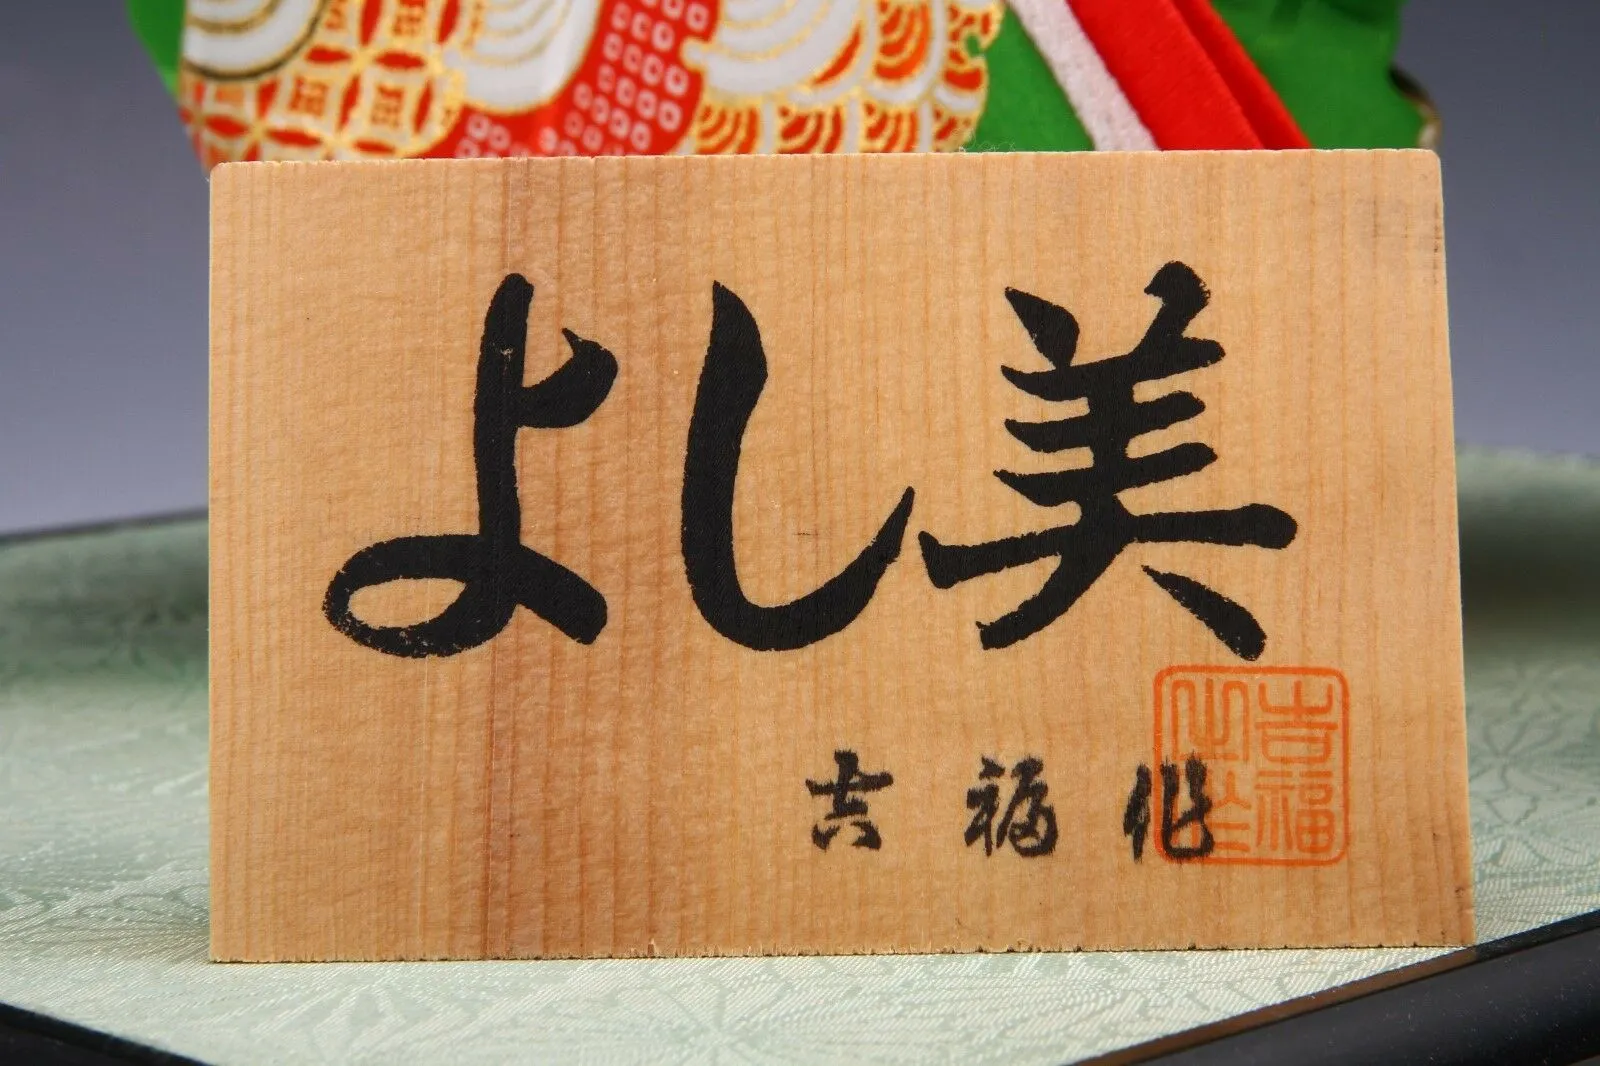 よし美
吉福作
吉福